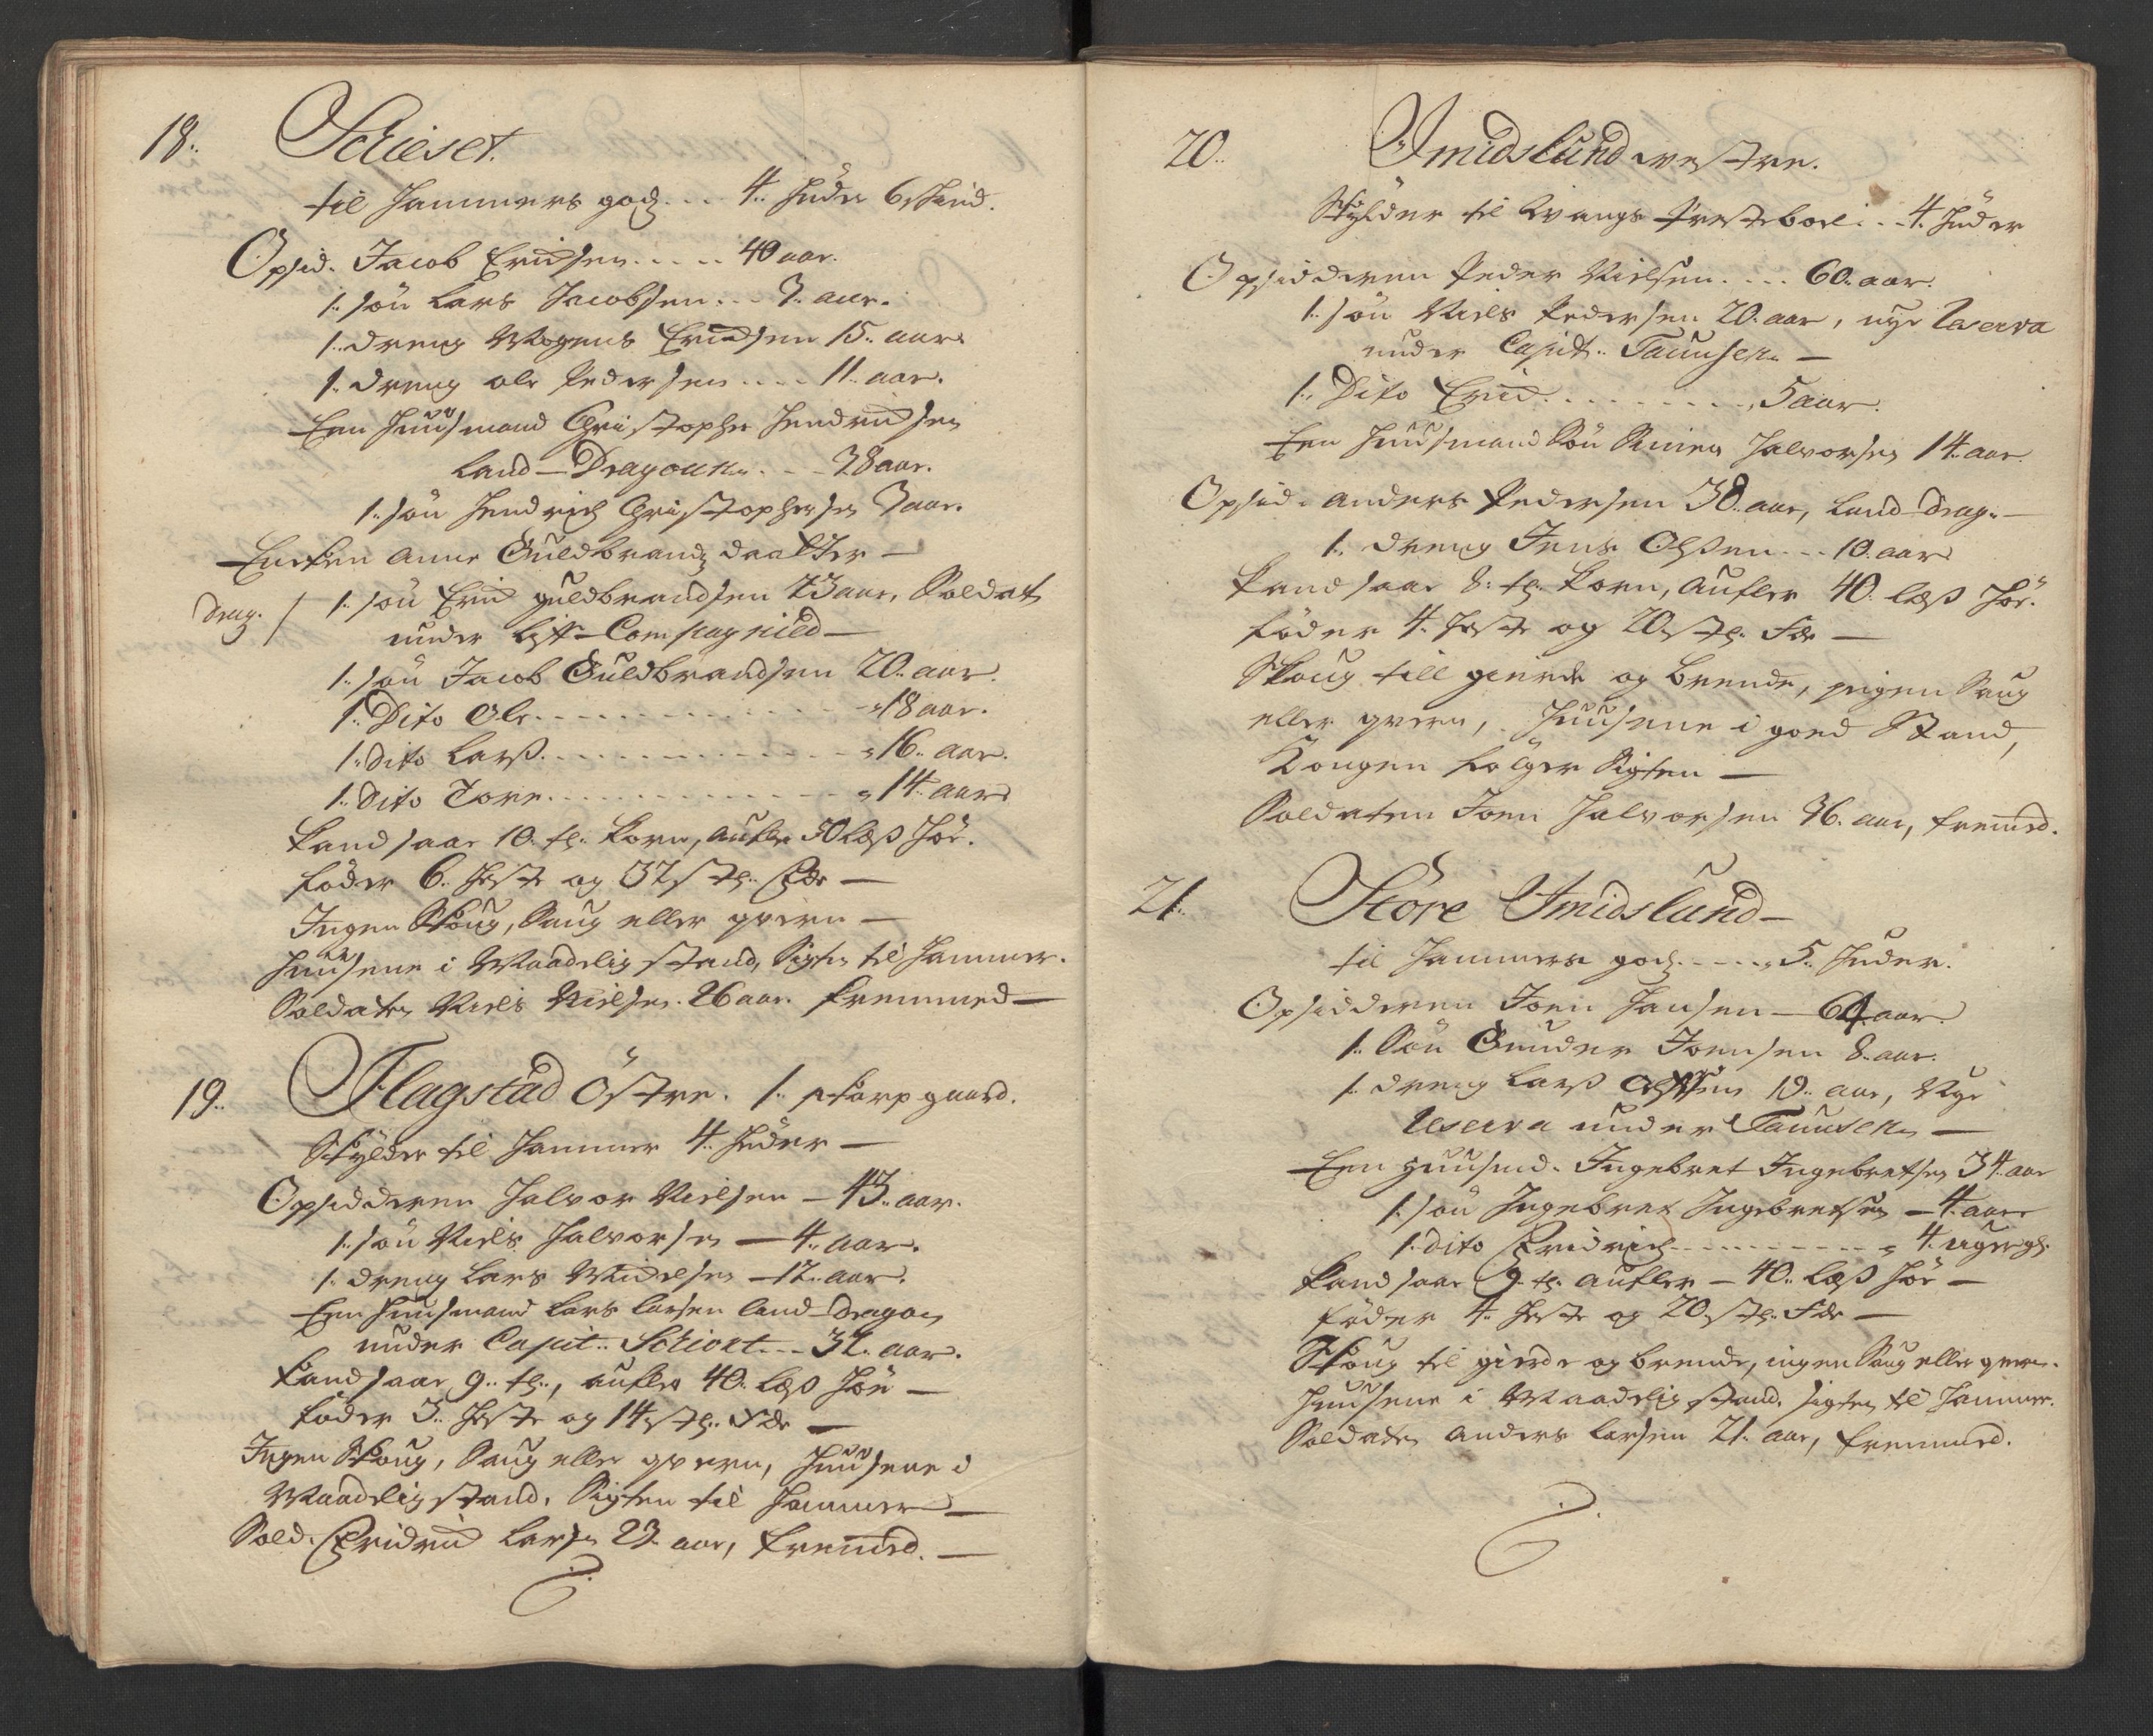 18. Schieset.
til Hammers godz . . . 4. huder 6 skind.
Opsid. Jacob Erichsen . . . . . 40 aar.
1. søn Lars Jacobsen . . . 3. aar.
1. dreng Mogens Erichsen 15. aar
1. dreng ole Pedersen . . . . 11. aar.
Een huusmand Christopher Hendrichsen
Land-Dragoun . . . 38 aar.
1. søn Hendrich Christophersen 3 aar.
Encken Anne Guldbrandz daatter —
drag. / 1. søn Erich guldbrandsen 23 aar, Soldat
under Lyff-Compagnied —
1. søn Jacob Guldbrandsen 20. aar.
1. Dito Ole . . . . . . . . . . . . 18 aar.
1. Dito Larß . . . . . . . . . . . . 16. aar.
1. Dito Tore . . . . . . . . . . . . 14. aar
kand saae 10. tr. korn, aufler 50 læß höe.
föder 6. heste og 32 stk. Fæ —
Ingen Skoug, Saug eller qvern —
Huusene i Maadelig stand, Sigten til Hammer.
Soldaten Niels Nielsen. 26 aar. fremmed —
19. Flagstad Östre. 1. skarp gaard.
Skylder til Hammer 4. huder —
Opsidderen Halvor Nielsen — 43. aar.
1. søn Niels Halvorsen — 4. aar.
1. dreng Lars Michelsen — 12. aar.
Een huusmand Lars Larsen land-dragon
under Capit. Schiort . . . 32. aar.
kand saae 9. tr., aufler 40. læß höe —
föder 3. heste og 14 stk. Fæ —
Ingen Skoug, Saug eller qvern, Huusene i
Maadelig stand. Sigten til Hammer —
Sold. Fridrich Larsen 23. aar, fremed. —
20. Imidslund westre.
Skylder til Wangs Presteboel . . . 4. huder
Opsidderen Peder Nielsen . . . . 60. aar.
1. søn Niels Pedersen 20. aar, nye Reserva
under Capit. Tauusen —
1. Dito Erich . . . . . . . . 5 aar.
Een huusmand Søn Halvorsen 14. aar.
Opsid. anders Pedersen 38. aar, Land drag. —
1. dreng Jens Olßen . . . 10. aar
kand saae 8. tr. korn, Aufler 40. læß höe.
föder 4. heste og 20 stk. Fæ —
Skoug till gierde og brende, ingen Saug
eller qvern, Huusene i goed Stand,
Kongen fölger Sigten —
Soldaten Joen Halvorsen 36. aar, fremed.
21. Störe Imidslund —
til Hammers godz . . . . . 5. huder.
Opsidderen Joen Hansen — 64 aar.
1. Søn Gunder Joensen 8. aar.
1. dreng Larß Olßen 19. aar, Nye
Reserva under Tauusen —
Een huusmd. Ingebret Ingebretsen 34. aar
1. søn Ingebret Ingebretsen — 4. aar
1. dito Fridrich . . . . . . . . . . 4. uger gl.
kand saae 9. tr. aufler — 40. læß höe —
föder 4. heste og 20 stk. Fæ —
Skoug til gierde og brende, ingen Saug eller qvern.
Huusene i Maadelig stand. sigten til Hammer.
Soldaten anders Larsen 21. aar, fremmed.